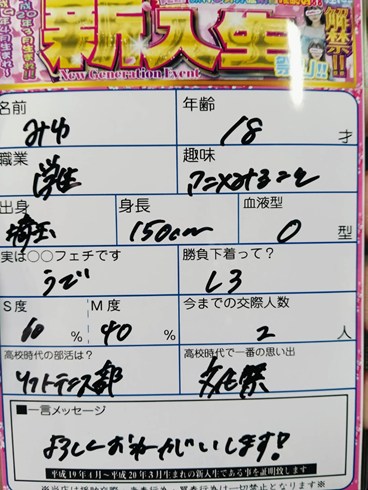 新入生
解禁!!
祭り!!
New Generation Event
名前
みゆ
年齢
18 才
職業
学生
趣味
アニメみること
出身
埼玉
身長
150cm
血液型
O 型
実は○○フェチです
うで
勝負下着って?
しろ
S度
60 %
M度
40 %
今までの交際人数
2 人
高校時代の部活は?
ソフトテニス部
高校時代で一番の思い出
文化祭
■一言メッセージ
よろしくおねがいします!
平成19年4月~平成20年3月生まれの新入生である事を証明致します